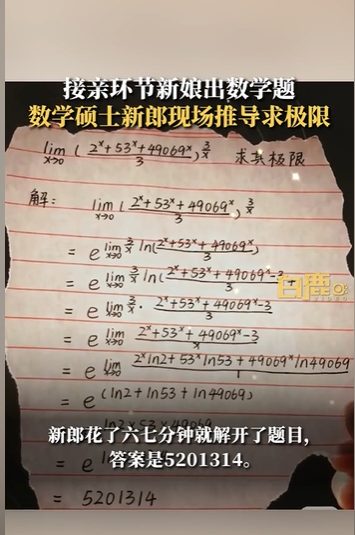 接亲环节新娘出数学题
数学硕士新郎现场推导求极限
lim x→0 (2^x+53^x+49069^x / 3)^(3/x) 求其极限
解: lim x→0 (2^x+53^x+49069^x / 3)^(3/x)
= e^(lim x→0 3/x ln(2^x+53^x+49069^x / 3))
= e^(lim x→0 3/x ln(2^x+53^x+49069^x-3 / 3
白鹿
VIDEO
= e^(lim x→0 3/x · 2^x+53^x+49069^x-3 / 3)
= e^(lim x→0 2^x+53^x+49069^x-3 / x)
= e^(lim x→0 2^xln2+53^xln53+49069^xln49069 / 1)
= e^(ln2+ln53+ln49069)
ln2×53×49069
新郎花了六七分钟就解开了题目,
答案是5201314。
= e
= 5201314